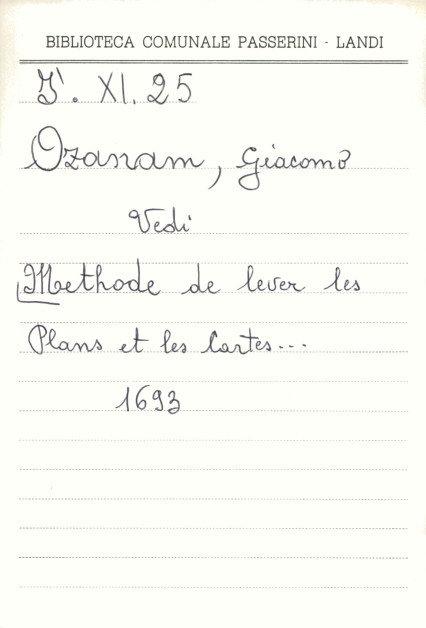 BIBLIOTECA COMUNALE PASSERINI - LANDI
XI. 25
Ozanam, Giacomo
Vedi
Methode de lever les
Plans et les Cartes...
1693